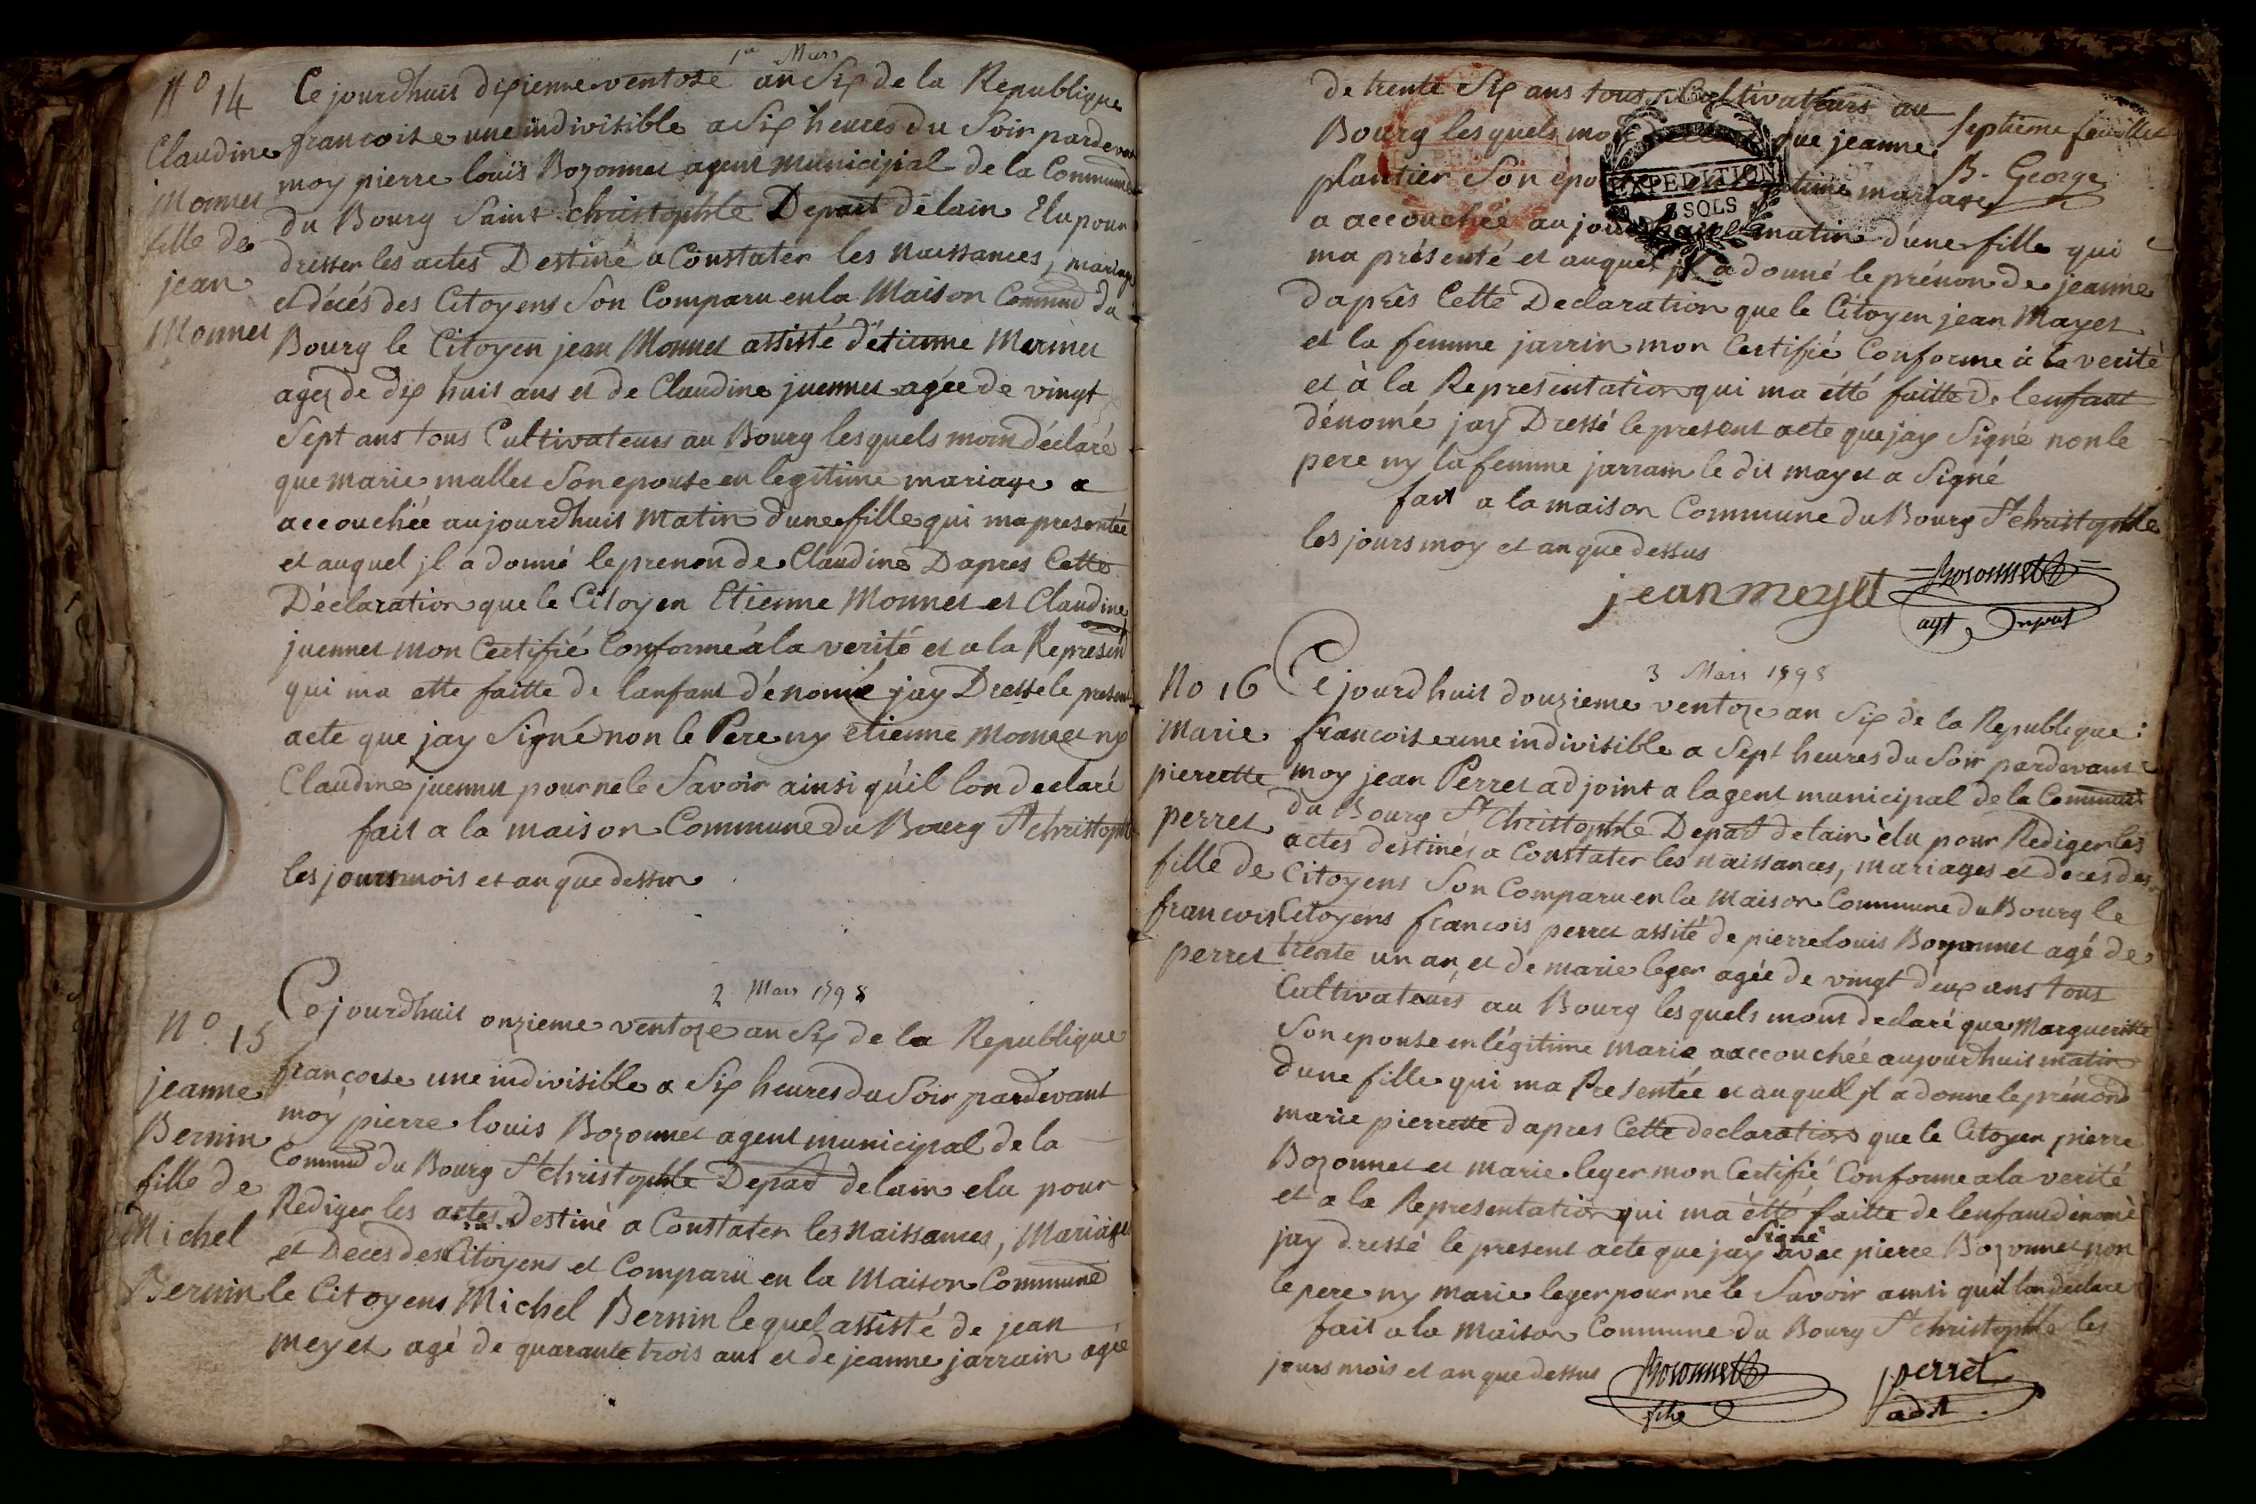 1er Mars
N° 14
Claudine
Monnet
fille de
jean
Monnet
Ce jourdhuit dixieme ventose an Six de la Republique
francoise une indivisible a Six heures du Soir pardevant
moy pierre louis Bozonnet agent municipial de la Commune
du Bourg Saint christophle Depart delain Elu pour
dresser les actes Destiné a Constater les naissances, mariage
et décés des Citoyens Son Comparu en la Maison Commune du
Bourg le Citoyen jean Monnet assisté d'étienne Mermet
agez de dix huit ans et de Claudine juennet agée de vingt
Sept ans tous Cultivateurs au Bourg lesquels mom déclaré
que marie mallet Son epouse en legitime mariage a
accouchée aujourdhuit matin dune fille qui ma presentée
et auquel jl a donné le prenon de Claudine Dapres Cette
Déclaration que le Citoyen Etienne Monnet et Claudine
juennet mon Certifié Conforme à la verité et a la Represen
qui ma ette faitte de lanfant dénomé jay Dressé le present
acte que jay Signé non le Pere ny etienne Monnet ny
Claudine juennet pour ne le Savoir ainsi qu'il lon declaré
fait a la maison Commune du Bourg St christophle
les jours mois et an que dessus
2 Mars 1798
N° 15
jeanne
Bernin
fille de
Michel
Bernin
Ce jourdhuit onzieme ventoze an Six de la Republique
françoise une indivisible a Six heures du Soir pardevant
moy pierre louis Bozonnet agent municipal de la
Commune du Bourg St christophle Depart delain elu pour
Rediger les actes Destiné a Constater les Naissances, Mariage
et Décès des Citoyens et Comparu en la Maison Commune
le Citoyens Michel Bernin lequel assisté de jean
meyet agé de quarante trois ans et de jeanne jarrain agée
de trente Six ans tous Cultivateurs au
Bourg lesquels que jeanne
plantier Son epo mariage
a accouchée aujour matin d'une fille qui
ma présenté et auquel jl a donné le prénon de jeanne
dapres Cette Declaration que le Citoyen jean Mayet
et la femme jarrin mon Certifié Conforme à la verité
et à la Representation qui ma étté faitte de lenfant
dénomé jay Dressé le present acte que jay Signé non le
pere ny la femme jarrain le dit mayet a Signé
fait a la maison Commune du Bourg St christophle
les jours moy et an que dessus
Septieme feuillet
B. George
EXPEDITION
SOLS
jean meyet
Bozonnet
agt
3 Mars 1798
No 16
Marie
pierrette
perret
fille de
francois
perret
Ce jourdhuit douzieme ventoze an Six de la Republique
francoise une indivisible a Sept heures du Soir pardevant
moy jean Perret adjoint a lagent municipal de la Commune
du Bourg St Christophle Depart delain èlu pour Rediger les
actes destinés a Constater les naissances, mariages et deces des
Citoyens Son Comparu en la Maison Commune du Bourg le
Citoyens francois perret assité de pierre louis Bozonnet agé de
trente un an, et de marie leger agée de vingt deux ans tous
Cultivateurs au Bourg lesquels mont declaré que Margueritte
Son epouse en légitime Marie a accouchée aujourdhuit matin
dune fille qui ma Presentée et auquel jl a donne le prénond
marie pierrette dapres Cette declaration que le Citoyen pierre
Bozonnet et marie leger mon Certifié Conforme a la verité
et a la Representation qui ma étté faitte de lenfant dénomé
jay dressé le present acte que jay Signé avec pierre Bozonnet non
le pere ny marie leger pour ne le Savoir ainsi quil lon declare
fait a la Maison Commune du Bourg St christophle les
jours mois et an que dessus
Bozonnet
perret
adjt